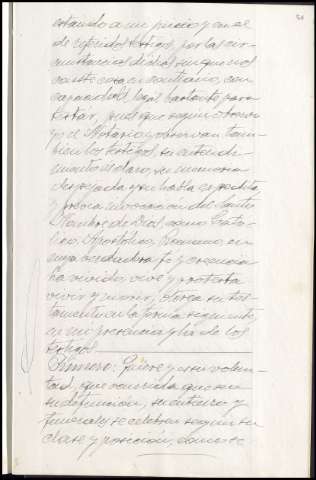 estando a mi juicio y en el
de referidos testigos, por las cir-
cunstancias dichas, sin que nos
conste cosa en contrario, con
capacidad legal bastante para
testar, pues que segun observo
yo el Notario y observan tam-
bien los testigos, su entendi-
miento es claro, su memoria
despejada y su habla expedita,
y previa invocacion del Santo
Nombre de Dios como Cató-
lico, Apostólico, Romano, en
cuya verdadera fe y creencia
ha vivido, vive y protesta
vivir y morir; otorga su tes-
tamento en la forma seguiente,
en mi presencia y la de los
testigos
Primero: Quiere y es su volun-
tad, que ocurrida que sea
su defunción, su entierro y
funerales se celebren segun su
clase y posición,